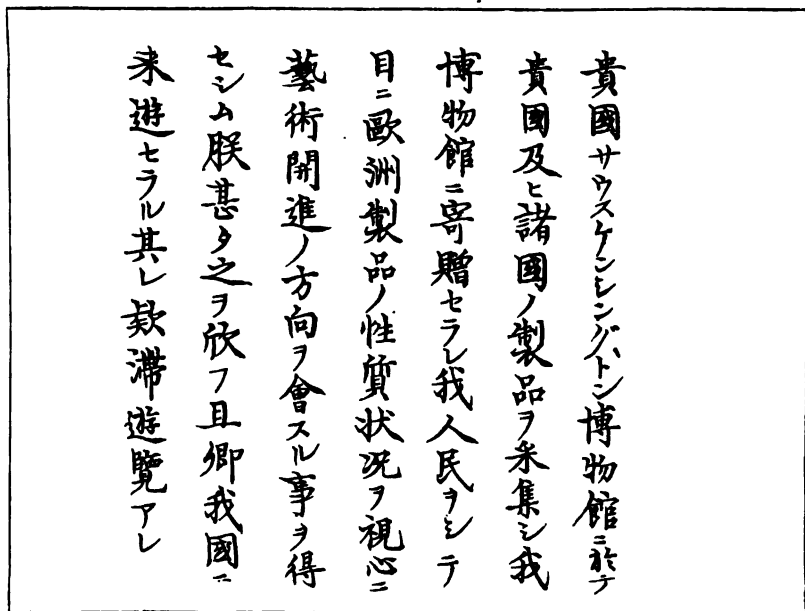 貴國サウスケンシングトン博物館ニ於テ
貴國及ヒ諸國ノ製品ヲ采集シ我
博物館ニ寄贈セラレ我人民ヲシテ
目ニ歐洲製品ノ性質状况ヲ視心ニ
藝術開進ノ方向ヲ會スル事ヲ得
セシム朕甚タ之ヲ欣フ且卿我國ニ
来遊セラル其レ欵滯遊覽アレ